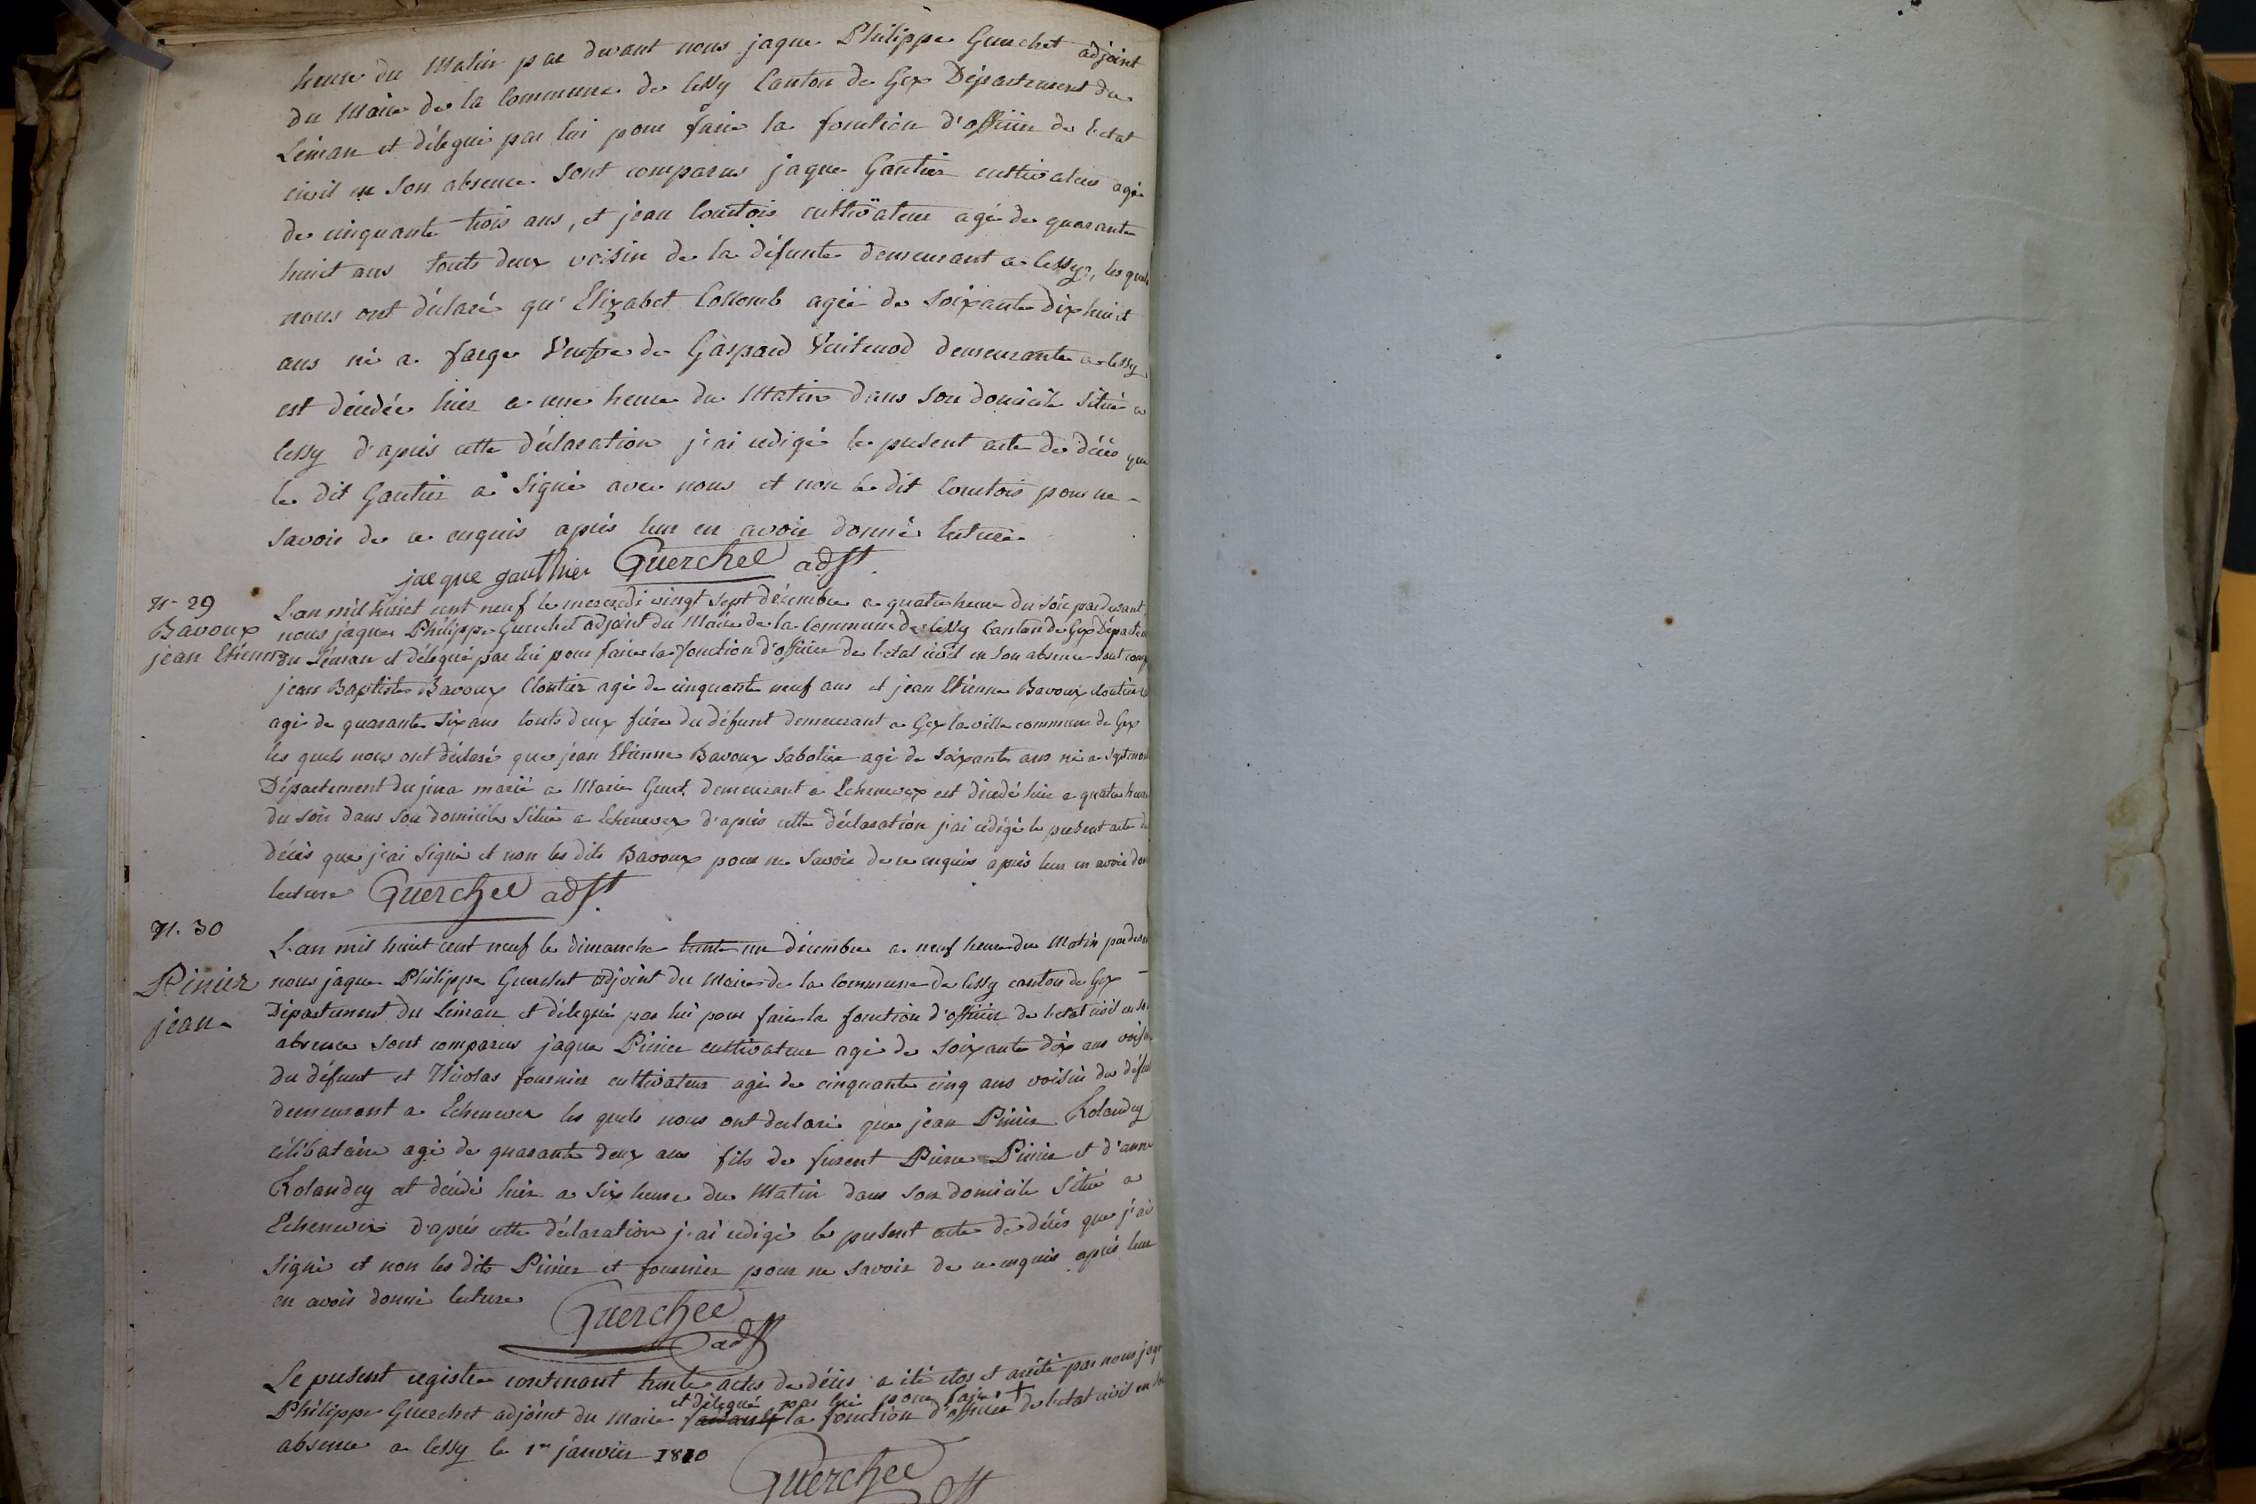 heure du Matin par devant nous jaque Philippe Guerchet adjoint
du Maire de la Commune de Cessy Canton de Gex Département du
Léman et délegué par lui pour faire la fonction d'officier de letat
civil en son absence sont comparus jaque Gautier cultivateur agé
de cinquante trois ans, et jean Courtois cultivateur agé de quarante
huit ans touts deux voisin de la défunte demeurant a Cessy, les quels
nous ont déclaré qu' Elizabet Collomb agée de soixante dix huit
ans né a farge Veufve de Gaspard Vuitenod demeurante a Cessy
est décédée hier a une heure du Matin dans son domicile situé a
Cessy d'après cette déclaration j'ai redigé le present acte de décès que
le dit Gautier a signé avec nous et non le dit Courtois pour ne
savoir de ce enquis après leur en avoir donné lecture
jacque gauthier Guerchet adjt.
N. 29
Bavoux
jean Etienne
L'an mil huict cent neuf le mercredi vingt sept décembre a quatre heure du soir par devant
nous jaque Philippe Guerchet adjoint du Maire de la Commune de Cessy Canton de Gex Départe
du Léman et délegué par lui pour faire la fonction d'officier de letat civil en son absence sont comp
jean Baptiste Bavoux Cloutier agé de cinquante neuf ans et jean Etienne Bavoux cloutier
agé de quarante six ans touts deux frére du défunt demeurant a Gex la ville commune de Gex
les quels nous ont déclaré que jean Etienne Bavoux sabotier agé de soixante ans né a septmon
Département du jura marié a Marie demeurant a Echenevex est décédé hier a quatre heure
du soir dans son domicile situé a Echenevex d'après cette déclaration j'ai redigé le present acte de
décès que j'ai signé et non les dits Bavoux pour ne savoir de ce enquis après leur en avoir don
lecture Guerchet adjt.
N. 30
Pinier
jean
L'an mil huict cent neuf le dimanche trente un décembre a neuf heure du Matin par devant
nous jaque Philippe Guerchet adjoint du Maire de la Commune de Cessy canton de Gex
Département du Léman et délegué par lui pour faire la fonction d'officier de letat civil en son
absence sont comparus jaque Pinier cultivateur agé de soixante dix ans voisin
du défunt et Nicolas fournier cultivateur agé de cinquante cinq ans voisin du défunt
demeurant a Echenevex les quels nous ont declaré que jean Pinier Rolandey
célibataire agé de quarante deux ans fils de furent Pierre Pinier et d'anne
Rolandey est décédé hier a six heure du Matin dans son domicile situé a
Echenevex d'après cette déclaration j'ai redigé le present acte de décès que j'ai
signé et non les dits Pinier et fournier pour ne savoir de ce enquis après leur
en avoir donné lecture
Guerchet
adjt
Le present registre contenant trente actes de décès a été clos et arrêté par nous jaque
et délegué par lui pour faire +
Philippe Guerchet adjoint du Maire faisant la fonction d'officier de letat civil en son
absence a Cessy le 1er janvier 1810
Guerchet